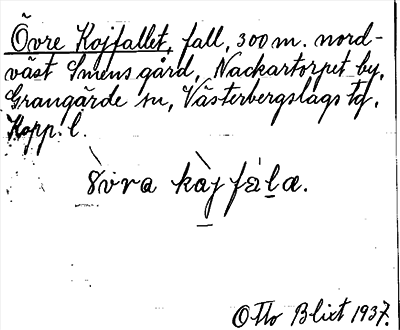 Övre Kojfallet, fall, 300 m. nord-
väst Smens gård, Nackartorpet by,
Grangärde sn, Västerbergslags tg,
Kopp. l.
òvra kàj fàḷa.
Otto Blixt 1937.